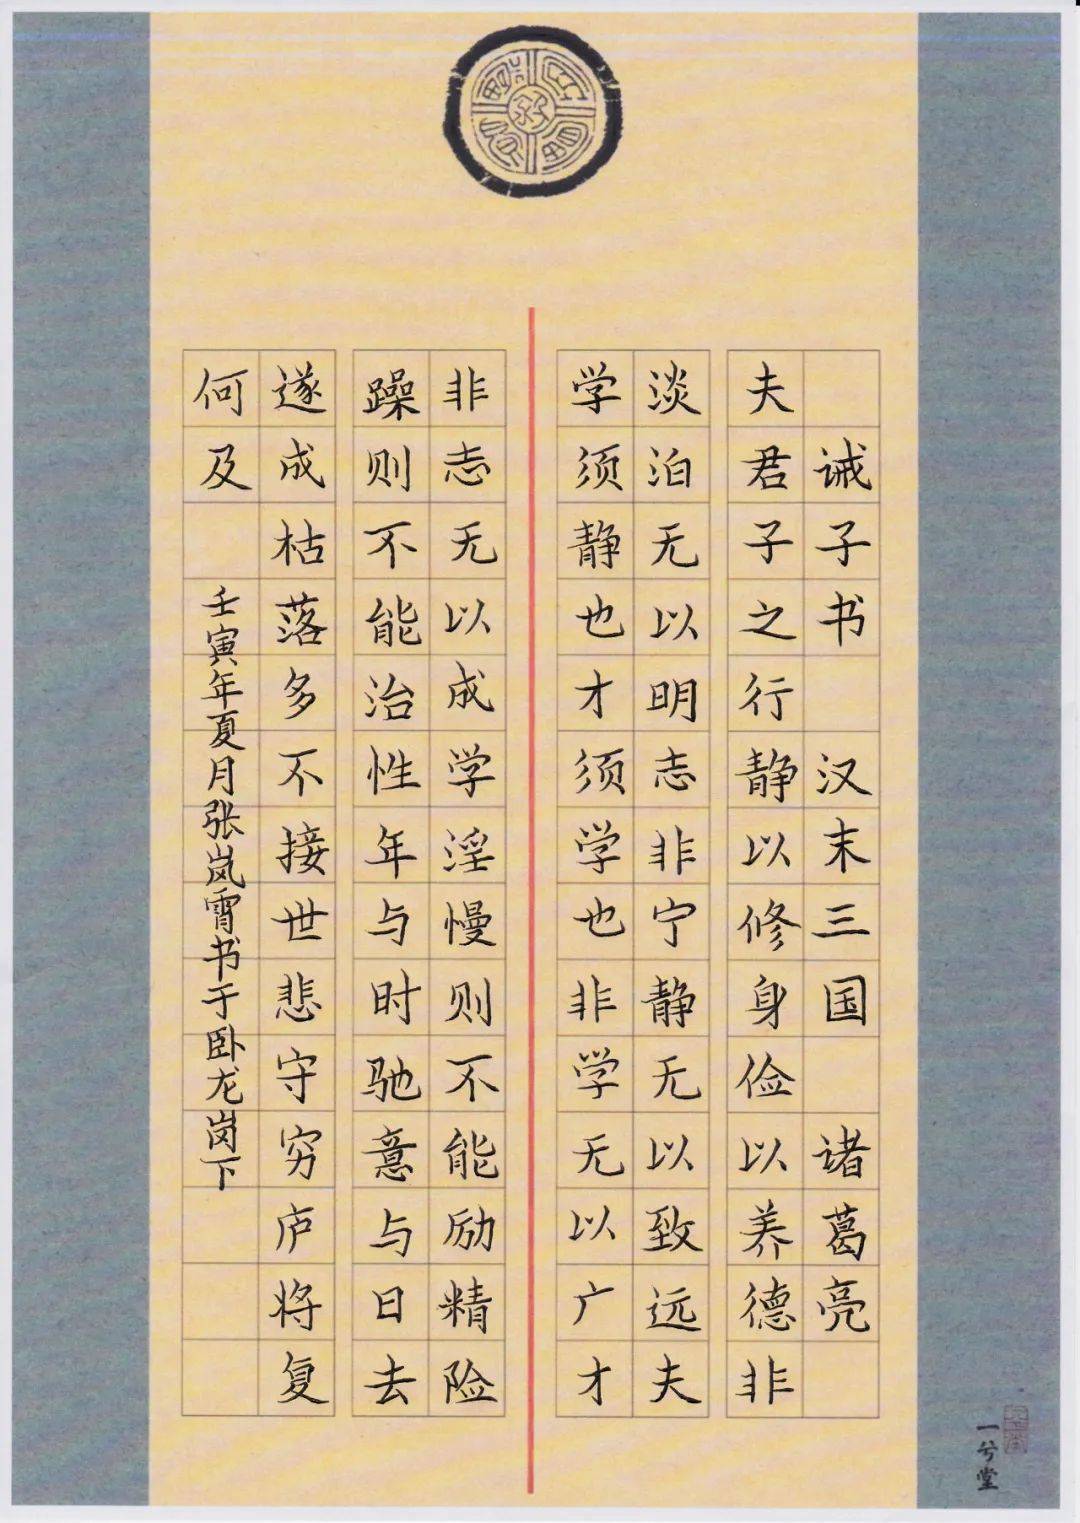 诫子书 汉末三国 诸葛亮
夫君子之行静以修身俭以养德非
淡泊无以明志非宁静无以致远夫
学须静也才须学也非学无以广才
非志无以成学淫慢则不能励精险
躁则不能治性年与时驰意与日去
遂成枯落多不接世悲守穷庐将复
何及
壬寅年夏月张岚霄书于卧龙岗下
一兮堂